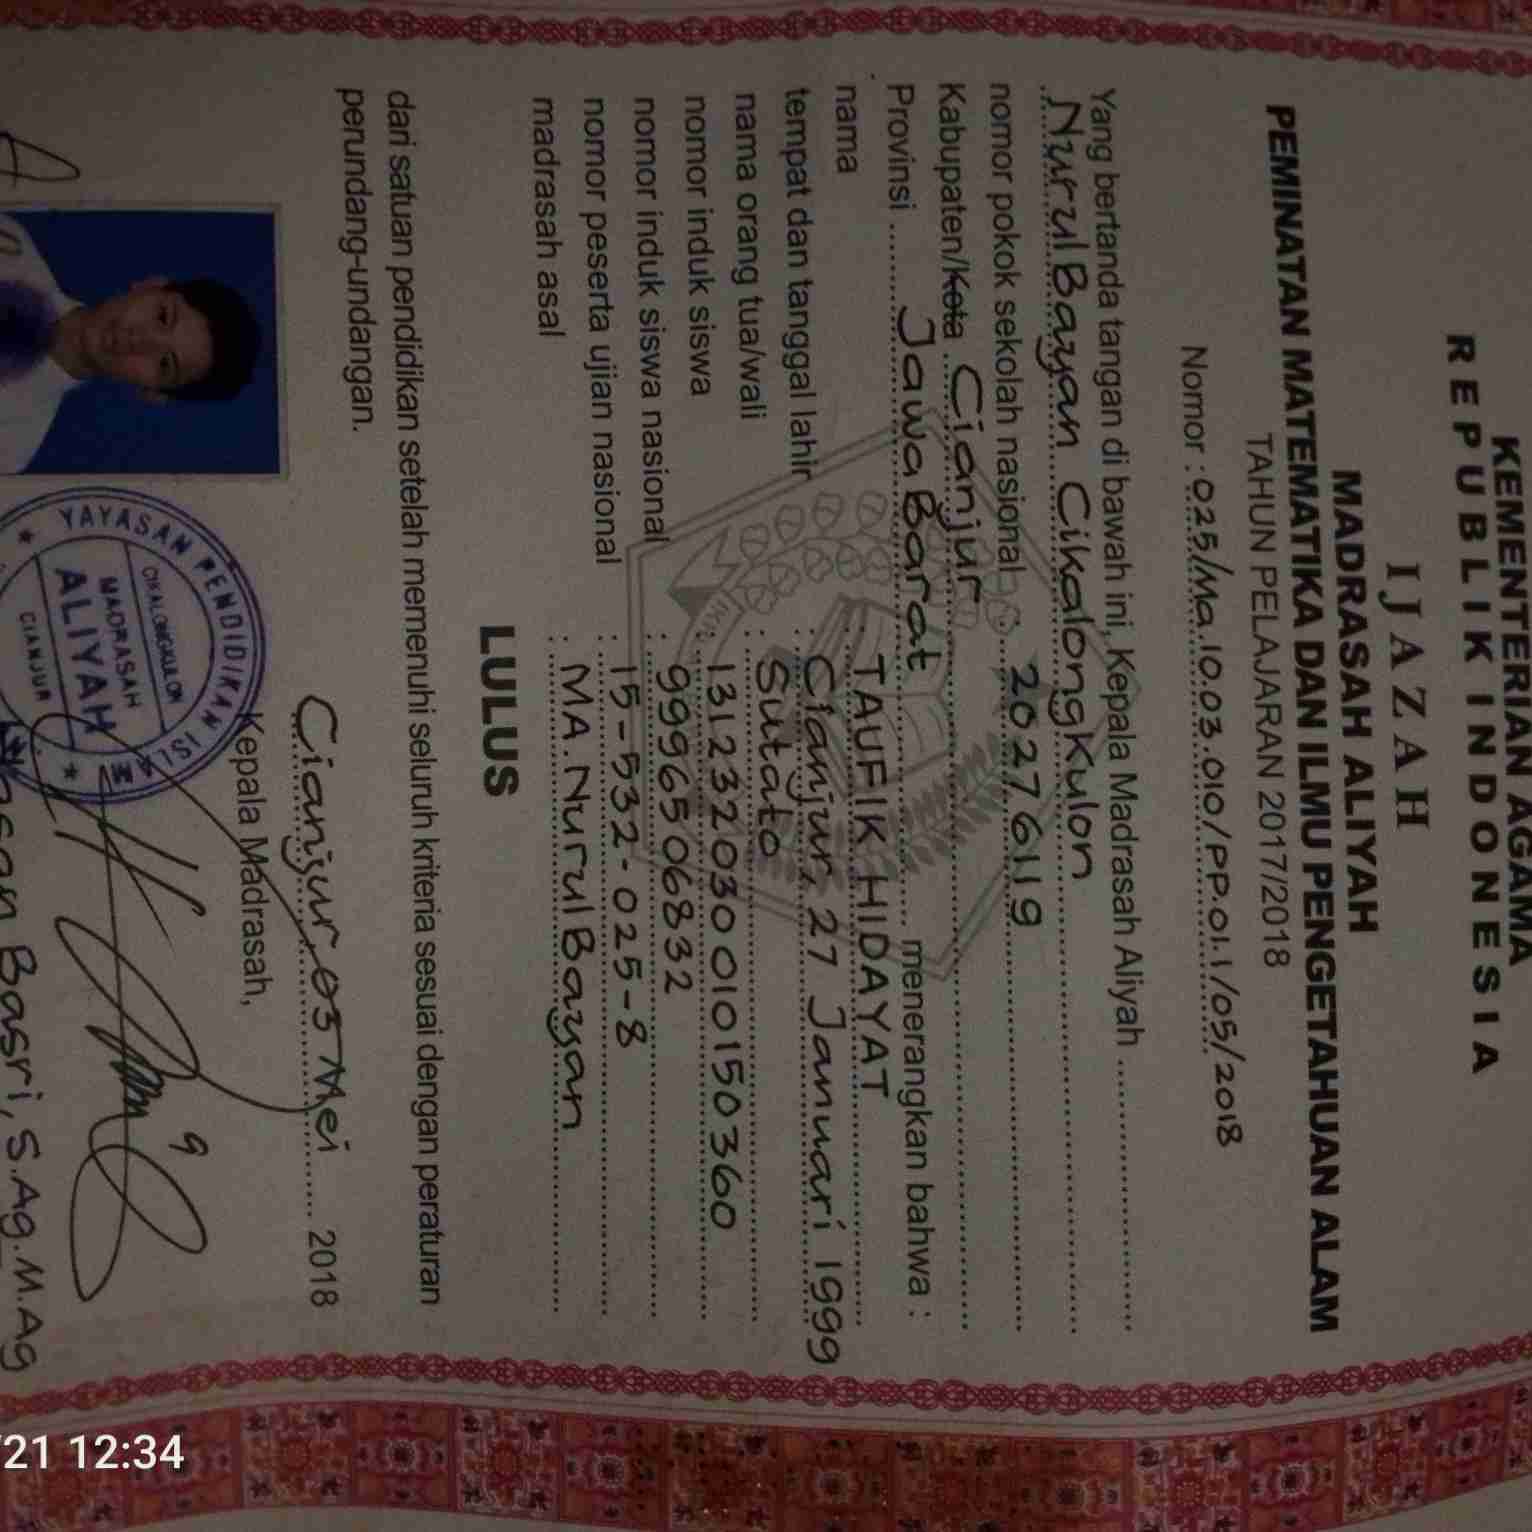 KEMENTERIAN AGAMA
REPUBLIK INDONESIA
IJAZAH
MADRASAH ALIYAH
PEMINATAN MATEMATIKA DAN ILMU PENGETAHUAN ALAM
TAHUN PELAJARAN 2017/2018
Nomor : 025/Ma.10.03.010/PP.01.1/05/2018
Yang bertanda tangan di bawah ini, Kepala Madrasah Aliyah
Nurul Bayan Cikalongkulon
nomor pokok sekolah nasional 20276119
Kabupaten/Kota Cianjur
Provinsi Jawa Barat menerangkan bahwa :
nama : TAUFIK HIDAYAT
tempat dan tanggal lahir : Cianjur, 27 Januari 1999
nama orang tua/wali : Sutato
nomor induk siswa : 131232030010150360
nomor induk siswa nasional : 9996506832
nomor peserta ujian nasional : 15-532-025-8
madrasah asal : MA. Nurul Bayan
LULUS
dari satuan pendidikan setelah memenuhi seluruh kriteria sesuai dengan peraturan
perundang-undangan.
Cianjur, 03 Mei 2018
Kepala Madrasah,
YAYASAN PENDIDIKAN ISL
CIKALONGKULON
MADRASAH
ALIYAH
CIANJUR
Basri, S.Ag.M.Ag
/21 12:34